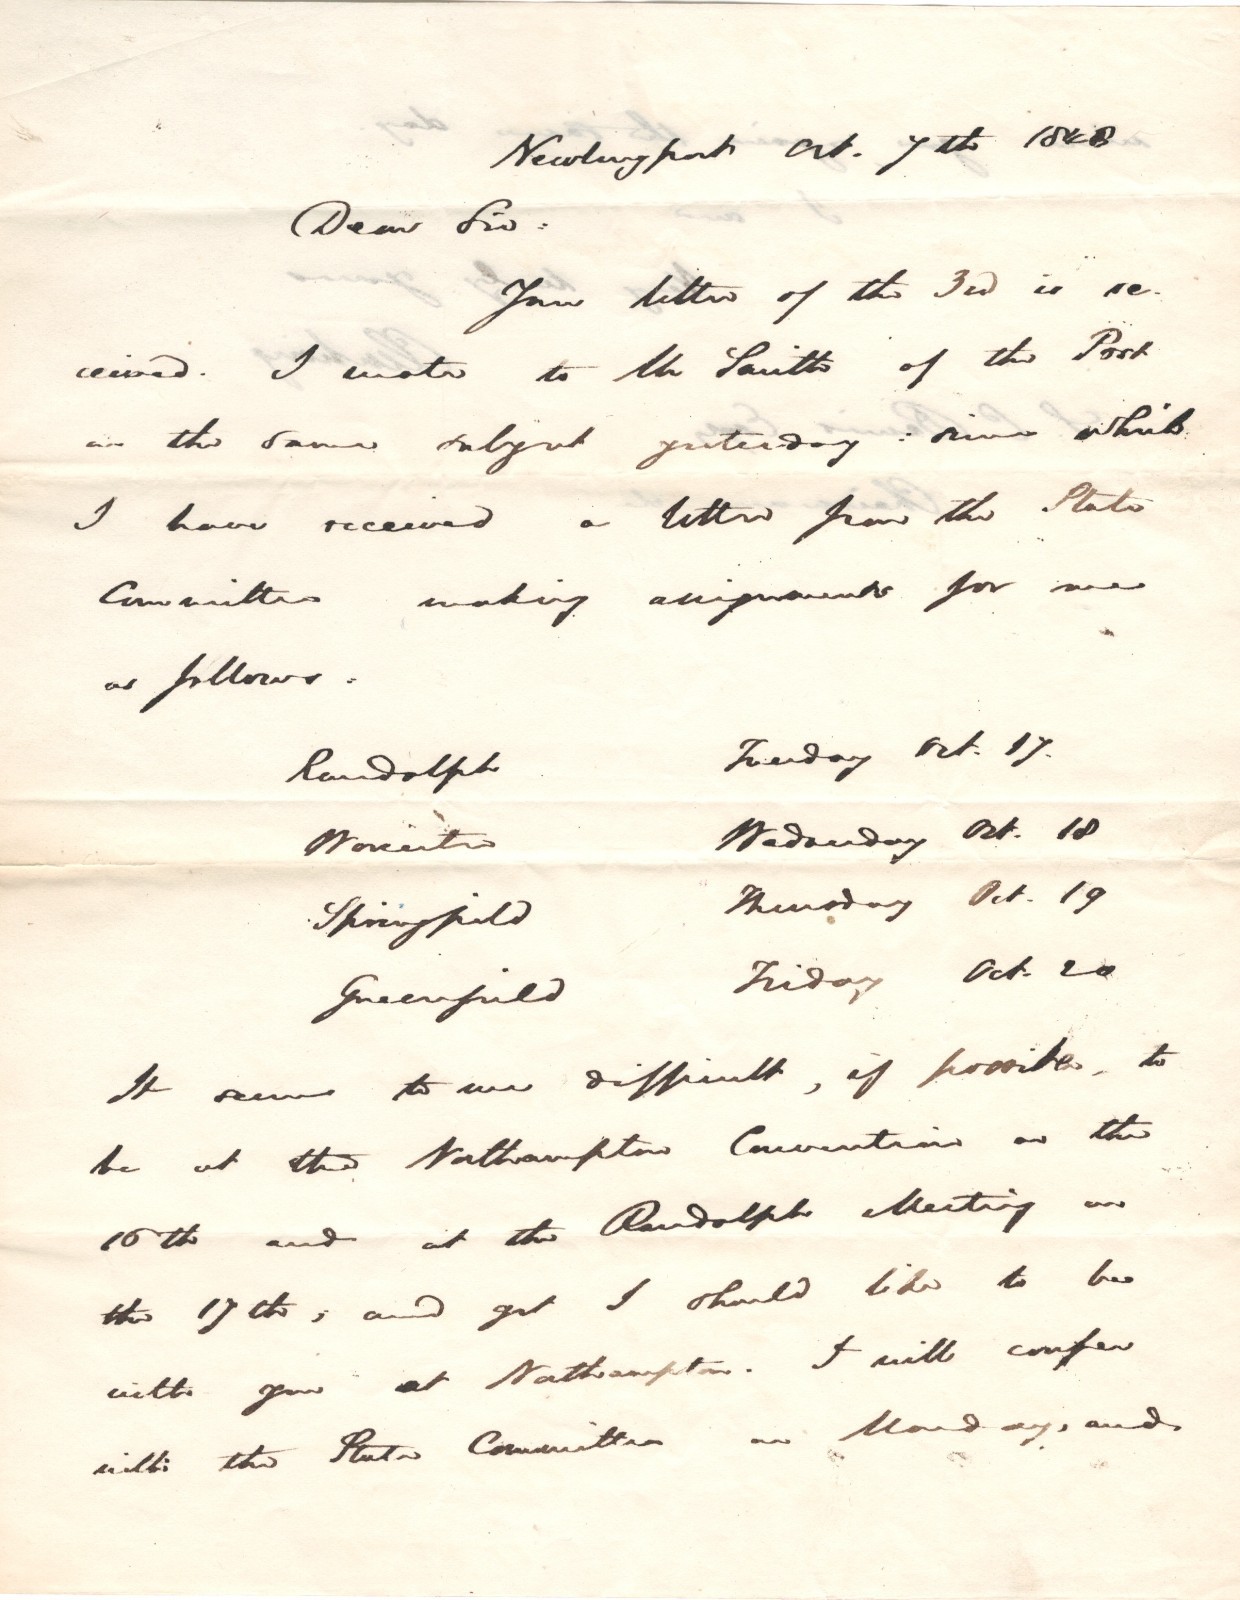 Newburyport Oct. 7th 1848
Dear Sir:
Your letter of the 3rd is re-
ceived. I wrote to Mr Smith of the Post
on the same subject yesterday: since which
I have received a letter from the State
Committee making assignments for me
as follows:
Randolph Tuesday Oct. 17.
Worcester Wednesday Oct. 18
Springfield Thursday Oct. 19
Greenfield Friday Oct. 20
It seems to me difficult, if possible, to
be at the Northampton Convention on the
16th and at the Randolph Meeting on
the 17th; and yet I should like to be
with you at Northampton. I will confer
with the State Committee on Monday, and